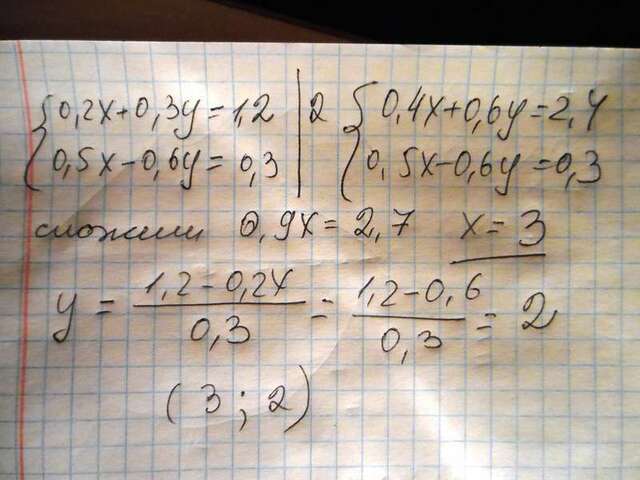 {0,2x+0,3y=1,2 | 2 {0,4x+0,6y=2,4
{0,5x-0,6y=0,3 | {0,5x-0,6y=0,3
сложили 0,9x=2,7 x=3
y = (1,2-0,2x)/0,3 = (1,2-0,6)/0,3 = 2
(3; 2)